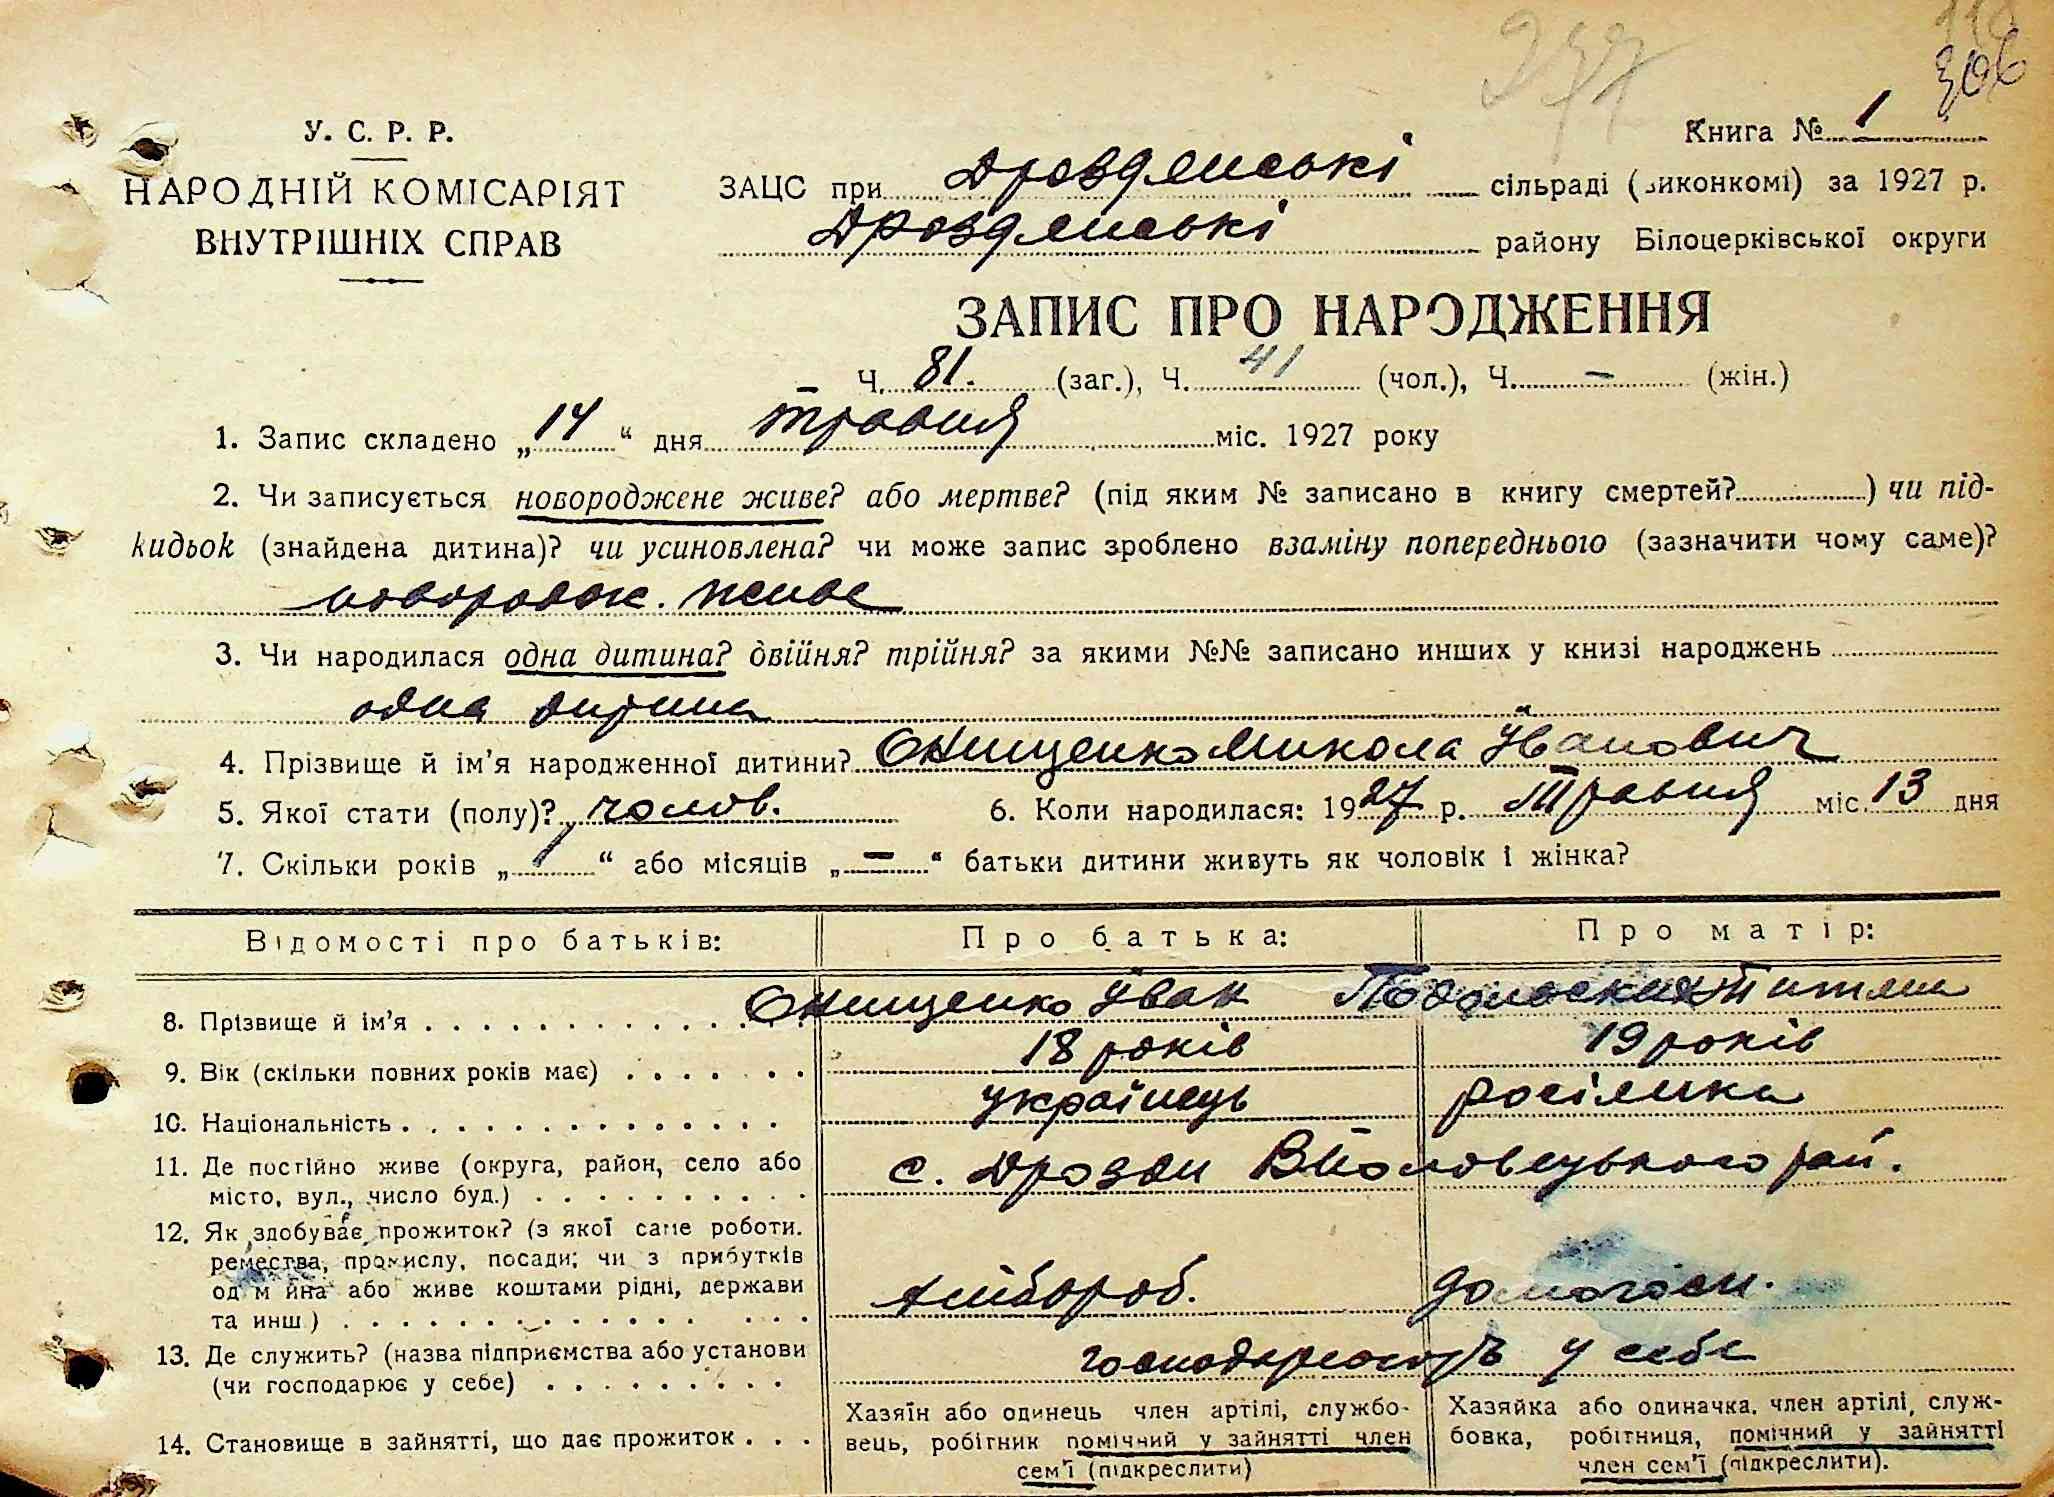 277
306
У. С. Р. Р.
НАРОДНІЙ КОМІСАРІЯТ
ВНУТРІШНІХ СПРАВ
Книга № 1
ЗАЦС при Дроздянські сільраді (виконкомі) за 1927 р.
Дроздянські району Білоцерківської округи
ЗАПИС ПРО НАРОДЖЕННЯ
Ч. 81. (заг.), Ч. 41 (чол.), Ч. – (жін.)
1. Запис складено „14“ дня травня міс. 1927 року
2. Чи записується новороджене живе? або мертве? (під яким № записано в книгу смертей?) чи під-
кидьок (знайдена дитина)? чи усиновлена? чи може запис зроблено взаміну попереднього (зазначити чому саме)?
живе
3. Чи народилася одна дитина? двійня? трійня? за якими №№ записано инших у книзі народжень
одна дитина
4. Прізвище й ім’я народженної дитини? Онищенко Микола Іванович
5. Якої стати (полу)? чолов. 6. Коли народилася: 1927 р. Травня міс. 13 дня
7. Скільки років „1“ або місяців „–“ батьки дитини живуть як чоловік і жінка?
Відомості про батьків: Про батька: Про матір:
8. Прізвище й ім’я Онищенко Іван
9. Вік (скільки повних років має) 18 років 19 років
10. Національність українець росіянка
11. Де постійно живе (округа, район, село або с. Дрозди рай.
місто, вул., число буд.)
12. Як здобуває прожиток? (з якої саме роботи.
ремества, промислу, посади; чи з прибутків
од м йна або живе коштами рідні, держави
та инш.) хлібороб. домогосп.
13. Де служить? (назва підприємства або установи господарюють у себе
(чи господарює у себе)
14. Становище в зайнятті, що дає прожиток
Хазяїн або одинець член артілі, службо-
вець, робітник помічний у зайнятті член
сем’ї (підкреслити)
Хазяйка або одиначка. член артілі, служ-
бовка, робітниця, помічний у зайнятті
член сем’ї (підкреслити).